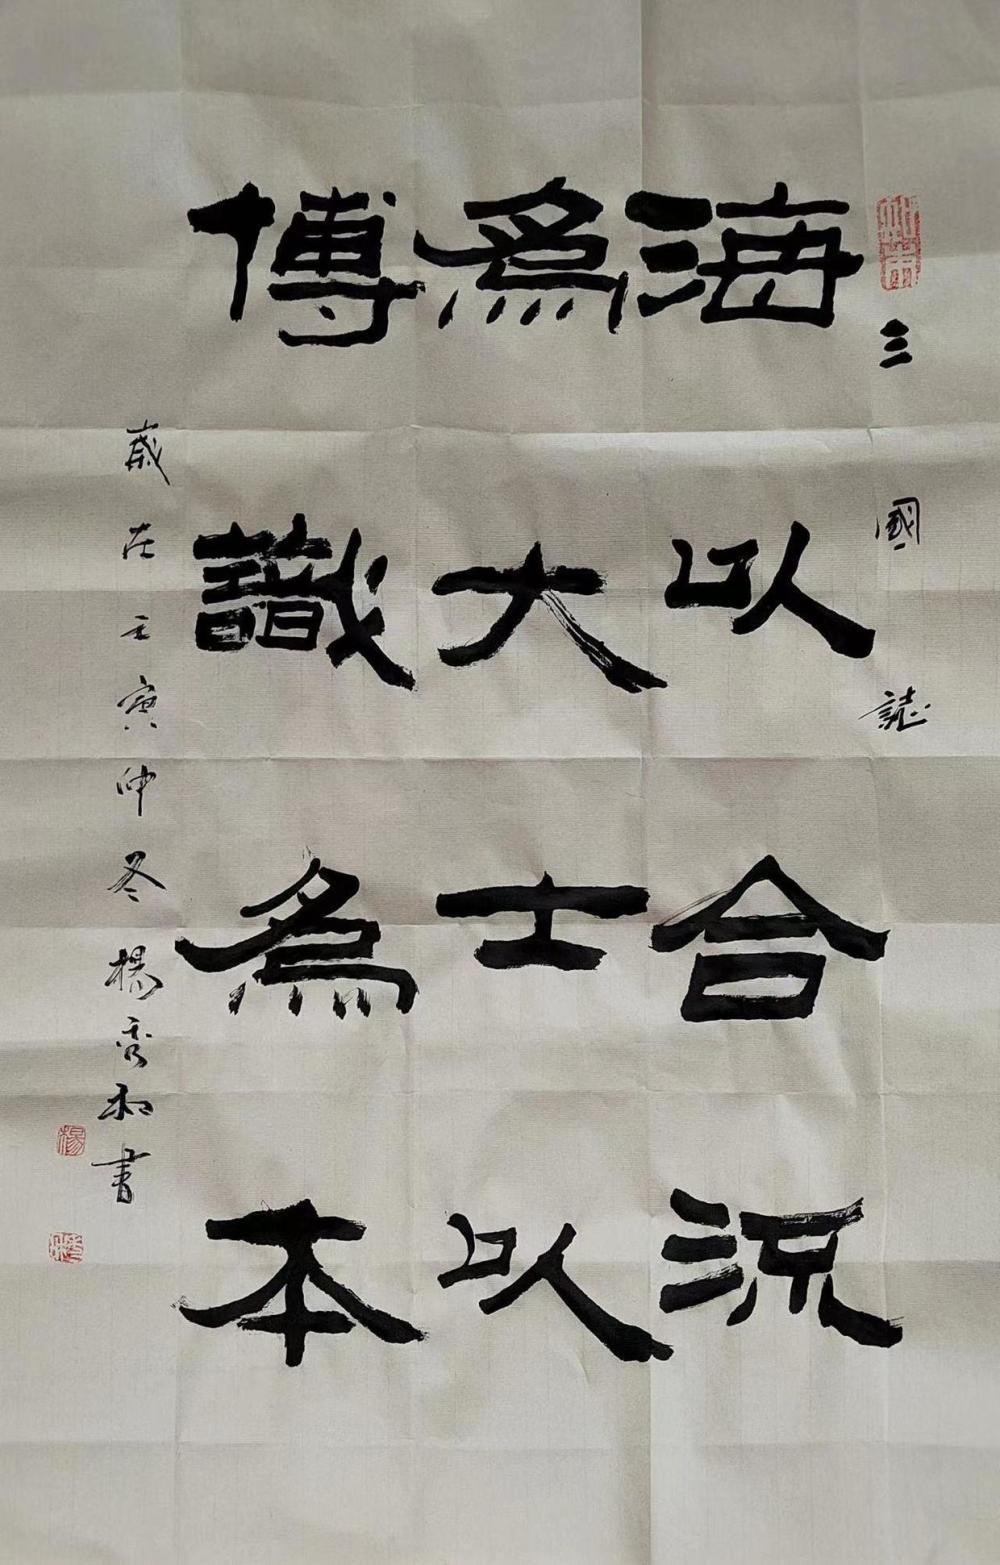 三國誌
海以合流
爲大士以
傅識爲本
歲在壬寅仲冬楊秀和書
楊